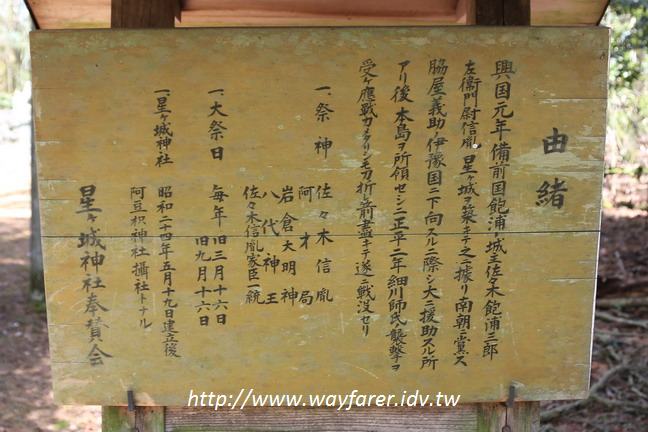 由緒
興国元年備前国飽浦ノ城主佐々木飽浦三郎
左衛門尉信胤星ヶ城ヲ築キテ之ニ據リ南朝ニ党ス
脇屋義助ノ伊豫国ニ下向スルニ際シ大ニ援助スル所
アリ後本島ヲ所領セシニ正平二年細川師氏ノ襲撃ヲ
受ケ應戦カメタリシモ刀折レ箭盡キテ遂ニ戦没セリ
一.祭神 佐々木信胤
阿才局
岩倉大明神
八代神王
佐々木信胤家臣一統
一.大祭日 毎年 旧三月十六日
旧九月十六日
一.星ヶ城神社 昭和二十四年五月十九日建立後
阿豆枳神社攝社トナル
星ヶ城神社奉賛会
http://www.wayfarer.idv.tw/